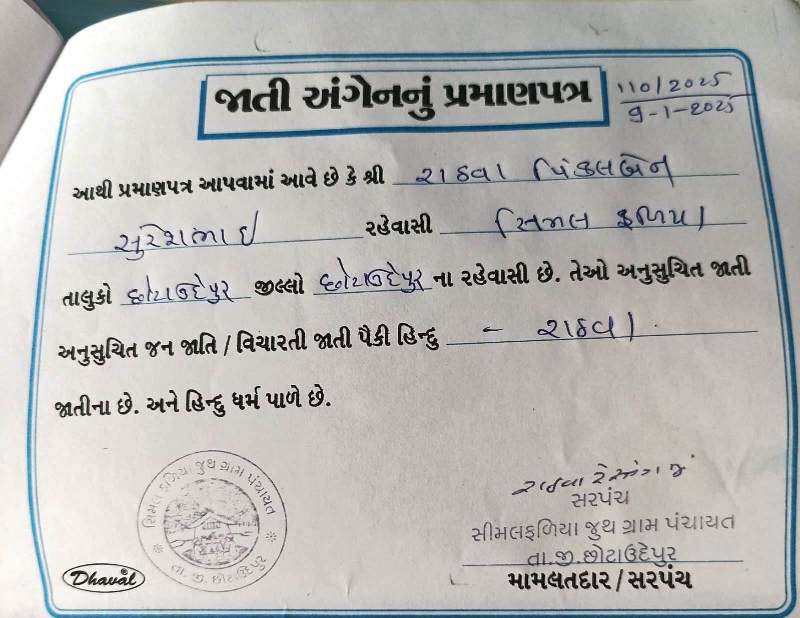 જાતી અંગેનનું પ્રમાણપત્ર
110/2025
9-1-2025
આથી પ્રમાણપત્ર આપવામાં આવે છે કે શ્રી રાઠવા પિંકલબેન
સુરેશભાઇ રહેવાસી સિમલ ફળિયા
તાલુકો છોટાઉદેપુર જીલ્લો છોટાઉદેપુર ના રહેવાસી છે. તેઓ અનુસુચિત જાતી
અનુસુચિત જન જાતિ / વિચારતી જાતી પૈકી હિન્દુ - રાઠવા
જાતીના છે. અને હિન્દુ ધર્મ પાળે છે.
સિમલ ફળિયા જુથ ગ્રામ પંચાયત
તા.જી. છોટાઉદેપુર
રાઠવા
સરપંચ
સીમલફળિયા જુથ ગ્રામ પંચાયત
તા.જી.છોટાઉદેપુર
મામલતદાર / સરપંચ
Dhaval